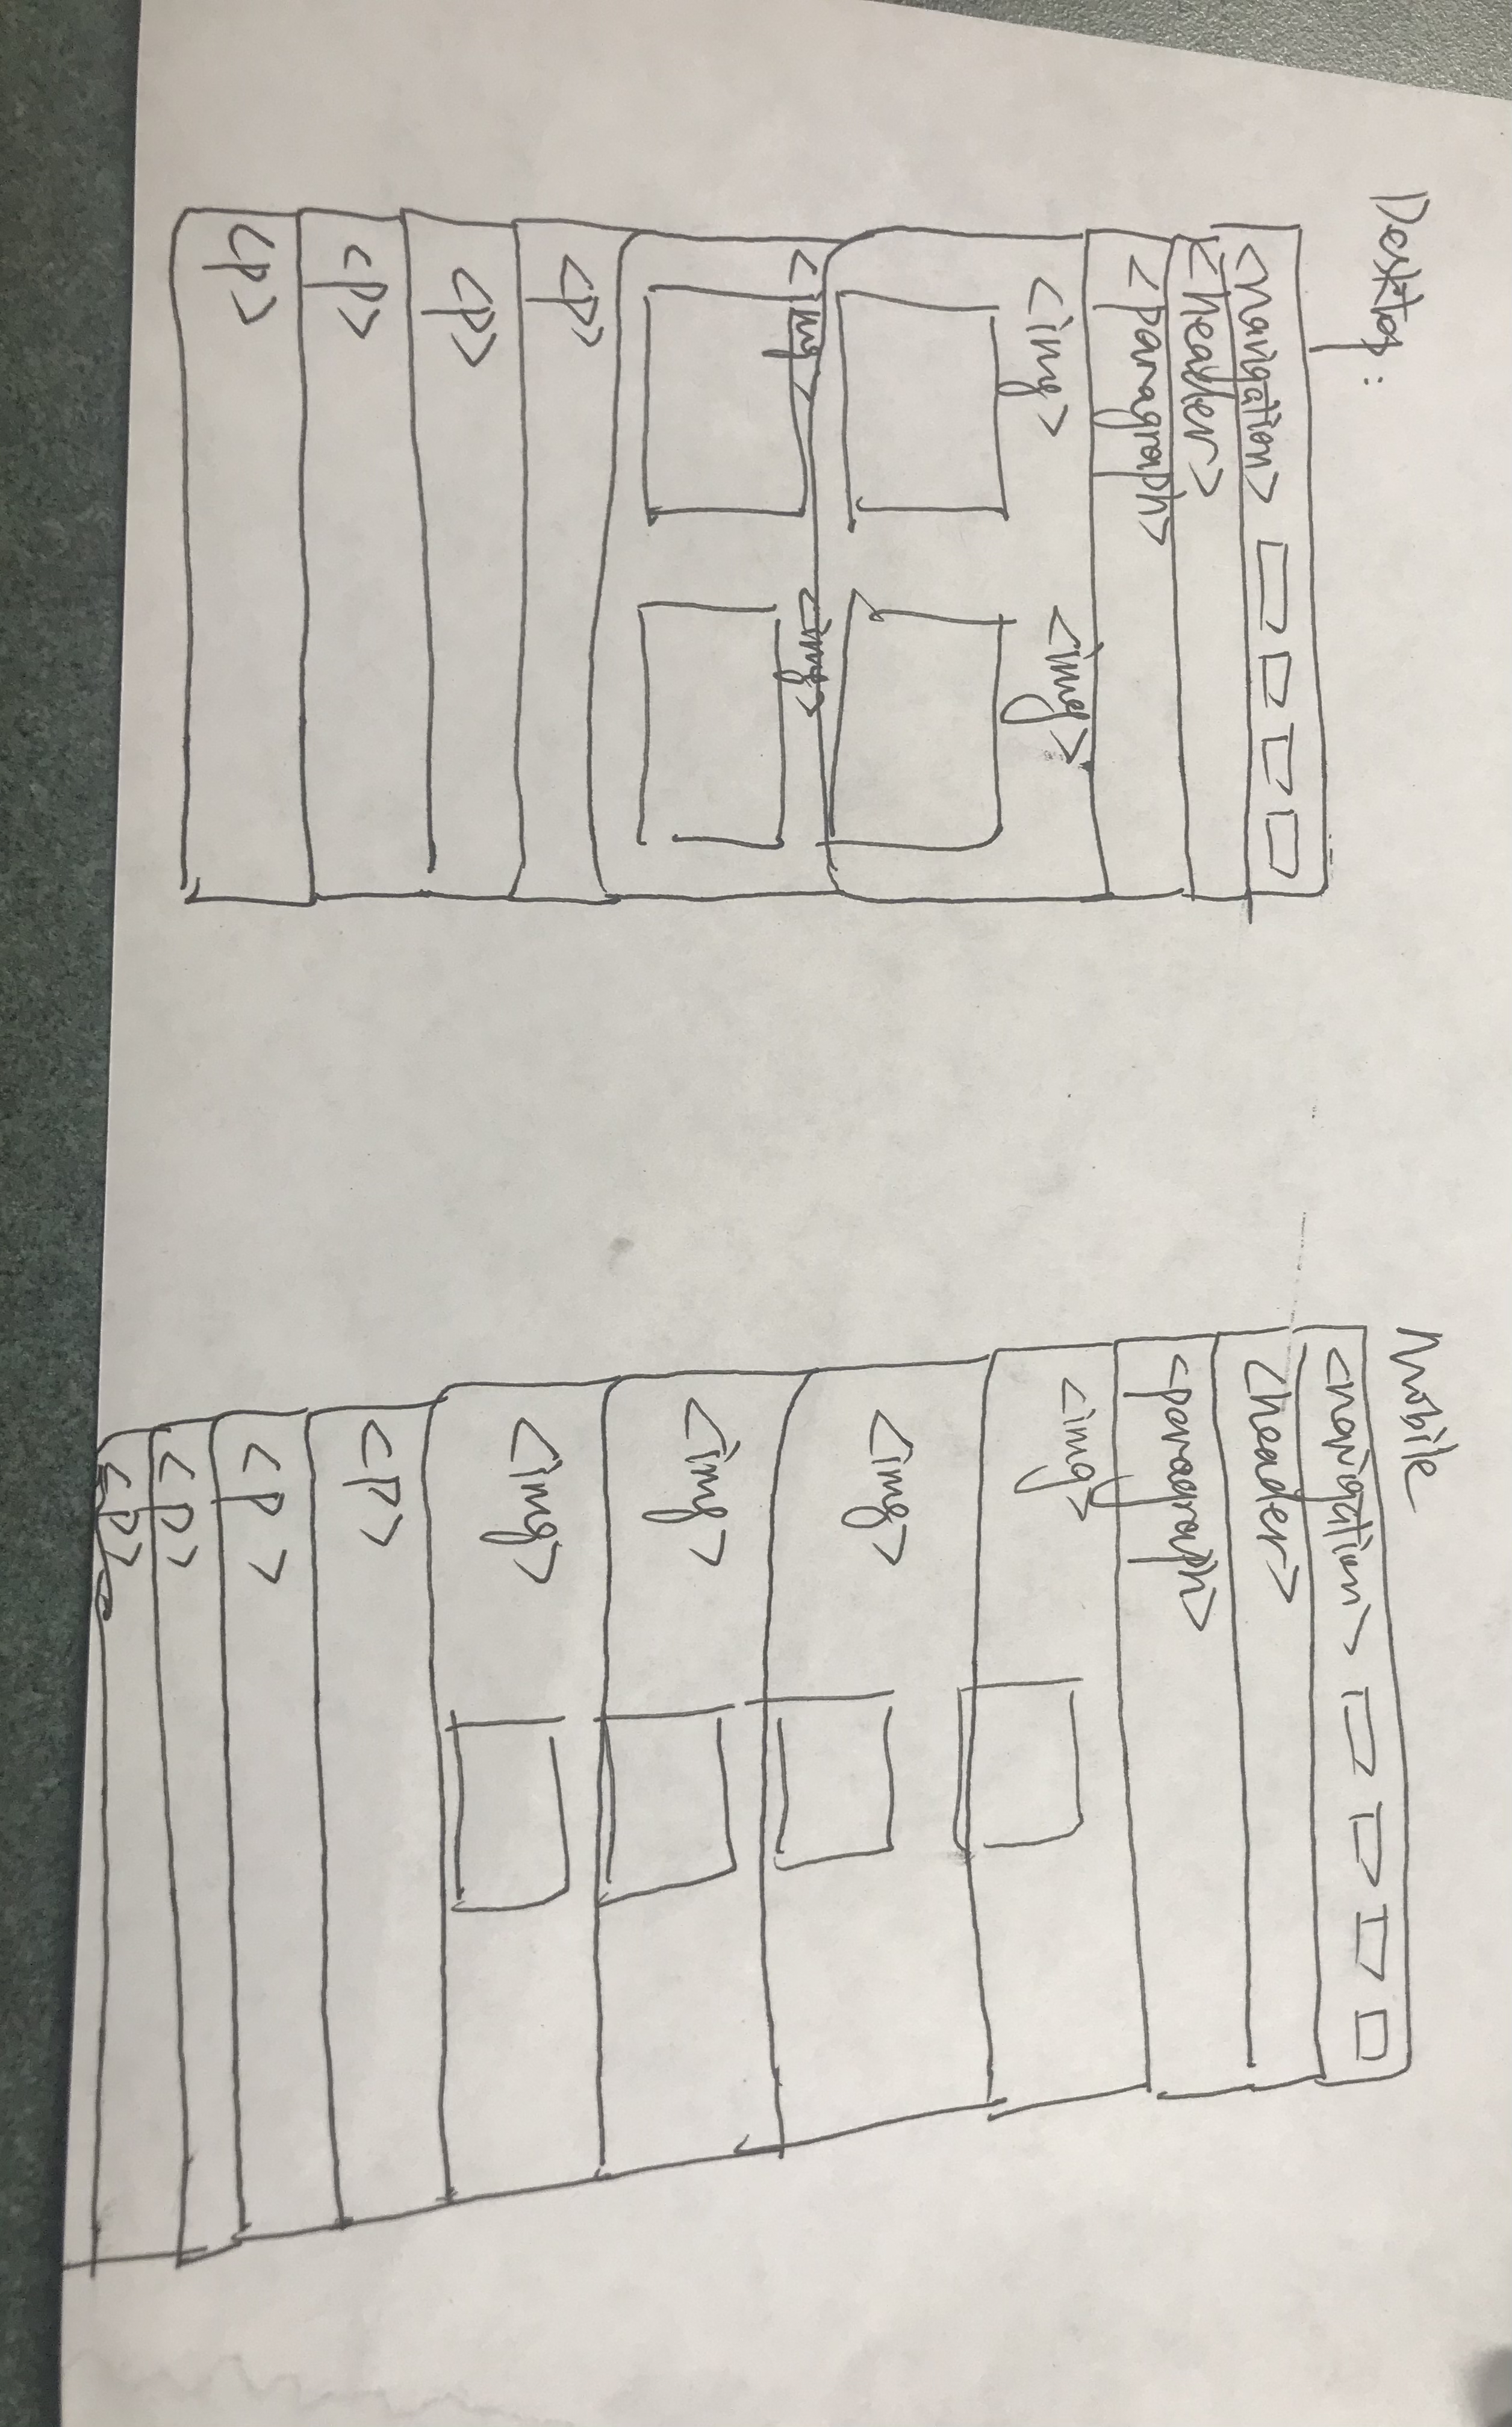 Desktop:
<navigation>
<header>
<paragraph>
<img> <img>
<img> <img>
<p>
<p>
<p>
<p>
Mobile
<navigation>
<header>
<paragraph>
<img>
<img>
<img>
<img>
<p>
<p>
<p>
<p>